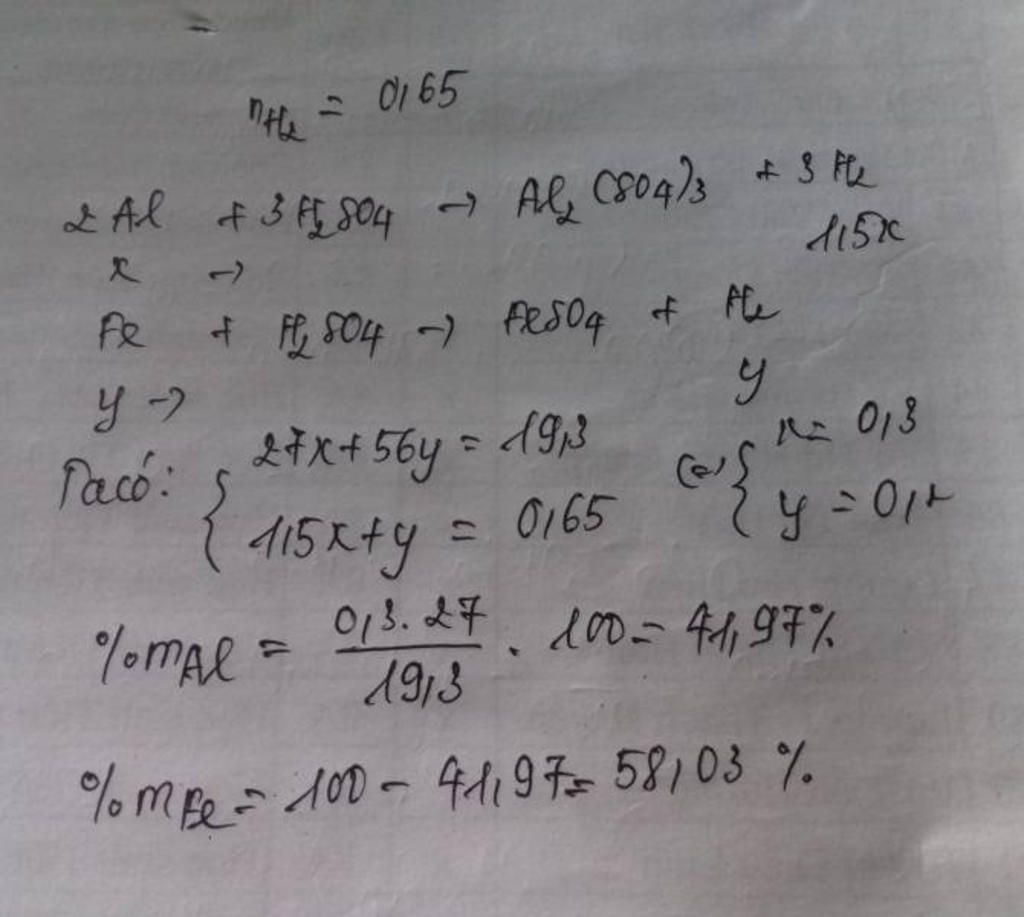 nH₂ = 0,65
2Al + 3H₂SO₄ → Al₂(SO₄)₃ + 3H₂
x → 1,5x
Fe + H₂SO₄ → FeSO₄ + H₂
y → y
Ta có: { 27x + 56y = 19,3 (=) { x = 0,3
1,5x + y = 0,65 y = 0,2
%mAl = 0,3.27 / 19,3 . 100 = 41,97%
%mFe = 100 - 41,97 = 58,03 %